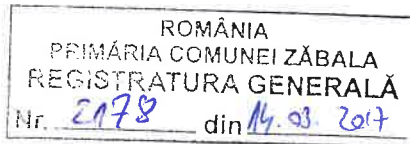 ROMÂNIA
PRIMĂRIA COMUNEI ZĂBALA
REGISTRATURA GENERALĂ
Nr. 2178 din 14.03.2017